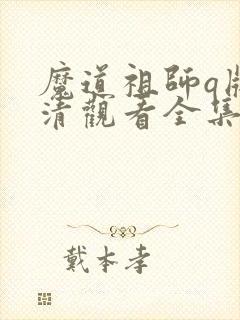 魔道祖師q版
清觀看全集
戴本孝